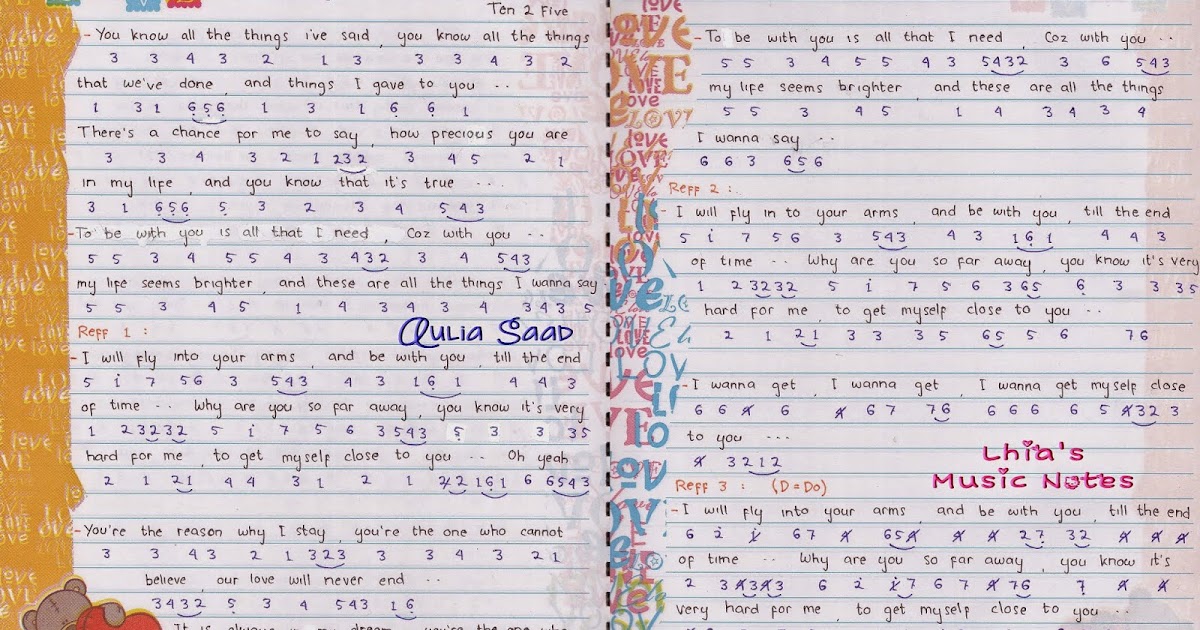 Ten 2 Five
- You know all the things i've said, you know all the things
3 3 4 3 2 1 3 3 3 4 3 2
that we've done, and things I gave to you ..
1 3 1 656 1 3 1 6 6 1
There's a chance for me to say, how precious you are
3 3 4 3 2 1 232 3 4 5 2 1
in my life, and you know that it's true ...
3 1 656 5 3 2 3 4 543
- To be with you is all that I need, Coz with you ..
5 5 3 4 5 5 4 3 432 3 4 543
my life seems brighter, and these are all the things I wanna say.
5 5 3 4 5 1 4 3 4 3 4 3 4 3 5
Reff 1 :
Qulia Saad
- I will fly into your arms, and be with you, till the end
5 i 7 56 3 543 4 3 161 4 4 3
of time .. Why are you so far away, you know it's very
1 23232 5 i 7 5 6 3543 5 3 3 35
hard for me, to get myself close to you .. Oh yeah
2 1 21 4 4 3 1 2 1 2161 6 6543
- You're the reason why I stay, you're the one who cannot
3 3 4 3 2 1 323 3 3 4 3 21
believe, our love will never end ..
3432 5 3 4 543 16
It is always in my dream, you're the one who
- To be with you is all that I need, Coz with you ..
5 5 3 4 5 5 4 3 5432 3 6 543
my life seems brighter, and these are all the things
5 5 3 4 5 1 4 3 4 3 4
I wanna say ..
6 6 3 656
Reff 2 :.
- I will fly in to your arms, and be with you, till the end
5 i 7 56 3 543 4 3 161 4 4 3
of time .. Why are you so far away, you know it's very
1 23232 5 i 7 5 6 365 6 3 3 35
hard for me, to get myself close to you ..
2 1 21 3 3 35 65 5 6 76
- I wanna get, I wanna get, I wanna get myself close
6 6 4̸ 6 4̸ 6 7 76 6 6 6 6 5 4̸32 3
to you ...
4̸ 3212
Lhia's
Music Notes
Reff 3 : (D=Do)
- I will fly into your arms, and be with you, till the end
6 2 i̸ 67 4̸ 654̸ 4̸ 4̸ 27 32 4̸ 4̸ 4̸
of time .. Why are you so far away, you know it's
2 34̸34̸3 6 2 i̸7 6 7 4̸76 7 4̸ 4̸
very hard for me, to get myself close to you ..